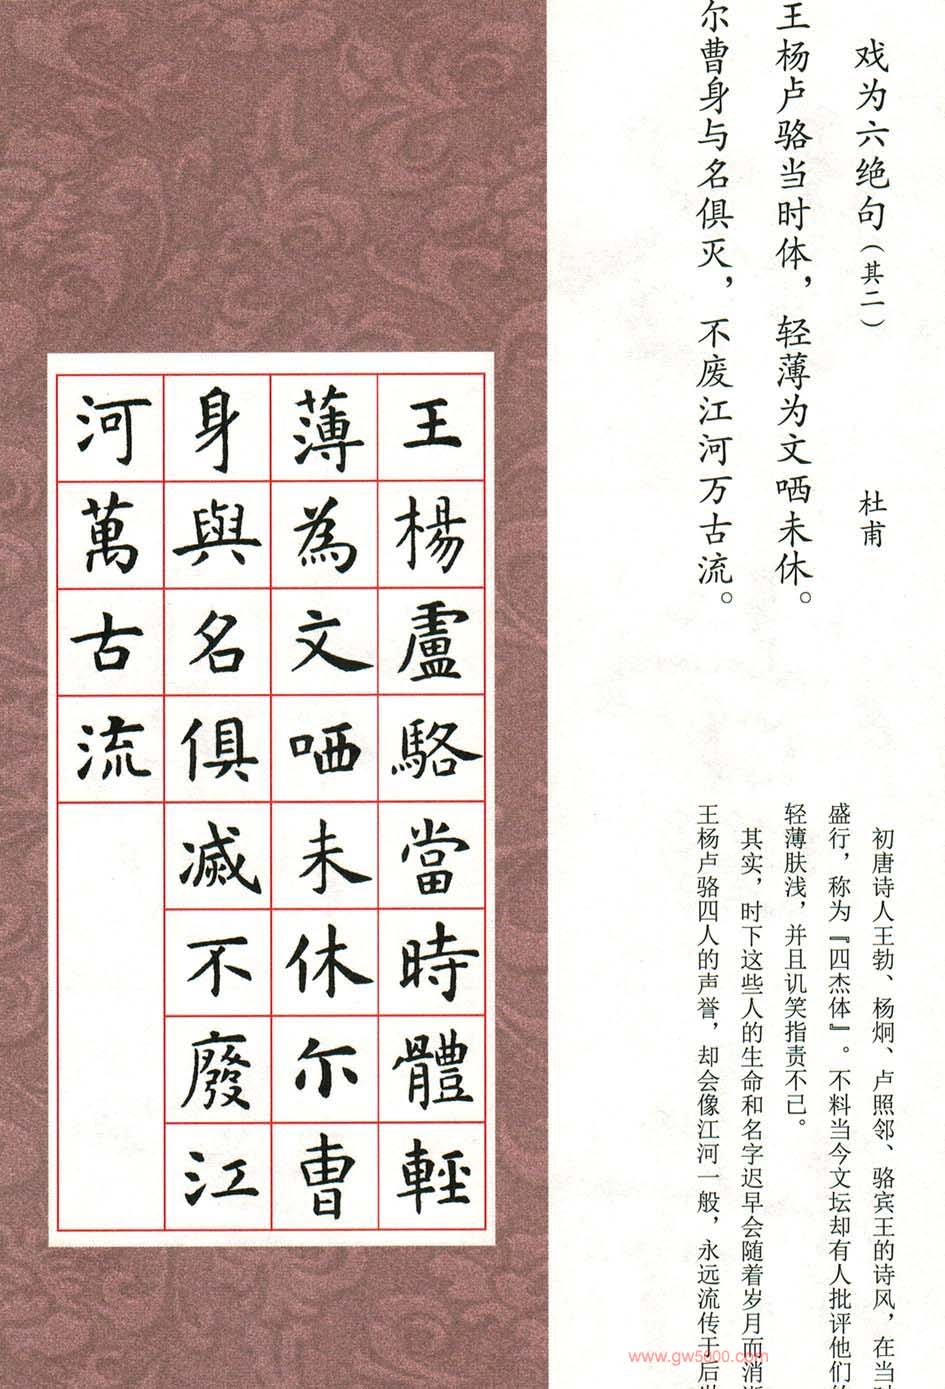 戏为六绝句（其二） 杜甫
王杨卢骆当时体，轻薄为文哂未休。
尔曹身与名俱灭，不废江河万古流。
初唐诗人王勃、杨炯、卢照邻、骆宾王的诗风，在当时
盛行，称为『四杰体』。不料当今文坛却有人批评他们的
轻薄肤浅，并且讥笑指责不已。
其实，时下这些人的生命和名字迟早会随着岁月而消逝
王杨卢骆四人的声誉，却会像江河一般，永远流传于后世
王楊盧駱當時體輕
薄為文哂未休尔曹
身與名俱滅不廢江
河萬古流
www.gw5000.com